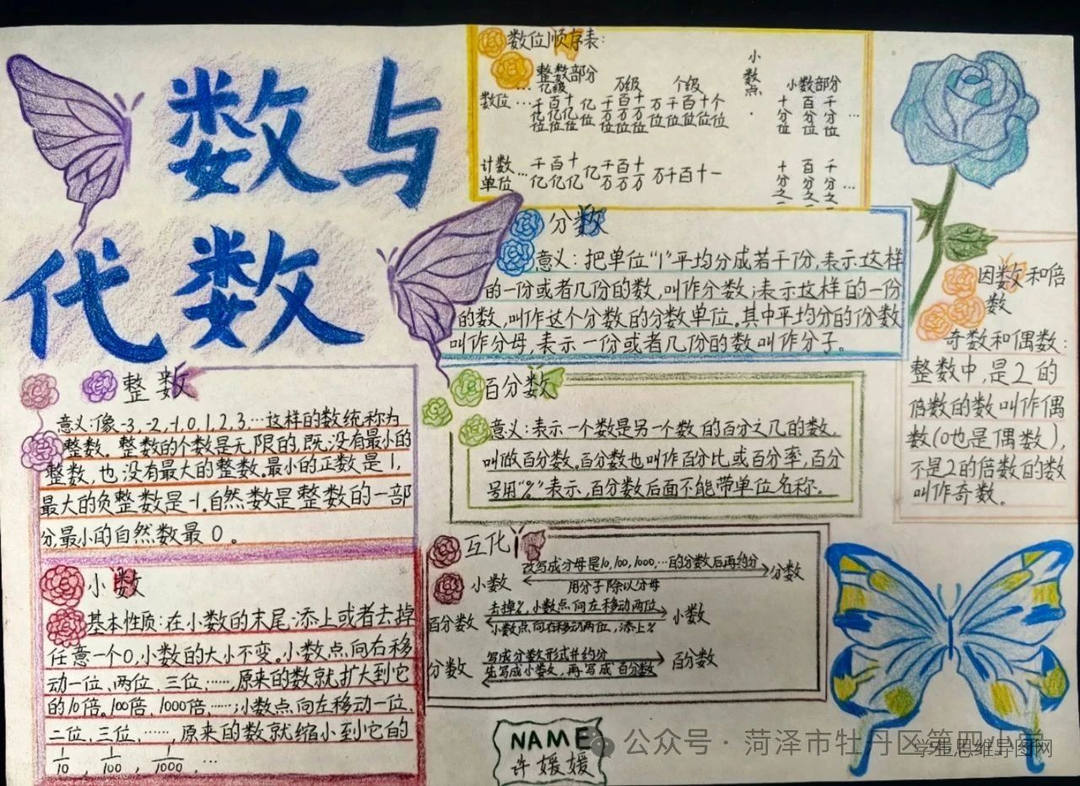 数与
代数
数位顺序表:
整数部分
小数点
小数部分
… 亿级 万级 个级
数位 … 千亿位 百亿位 十亿位 亿位 千万位 百万位 十万位 万位 千位 百位 十位 个位 · 十分位 百分位 千分位 …
计数单位 … 千亿 百亿 十亿 亿 千万 百万 十万 万 千 百 十 一 十分之一 百分之一 千分之一 …
分数
意义: 把单位“1”平均分成若干份,表示这样
的一份或者几份的数,叫作分数;表示这样的一份
的数,叫作这个分数的分数单位。其中平均分的份数
叫作分母,表示一份或者几份的数叫作分子。
因数和倍
数
奇数和偶数:
整数中,是2的
倍数的数叫作偶
数(0也是偶数),
不是2的倍数的数
叫作奇数。
整数
意义:像-3,-2,-1,0,1,2,3…这样的数统称为
整数。整数的个数是无限的,既没有最小的
整数,也没有最大的整数.最小的正数是1,
最大的负整数是-1.自然数是整数的一部
分.最小的自然数最0。
百分数
意义:表示一个数是另一个数的百分之几的数,
叫做百分数,百分数也叫作百分比或百分率,百分
号用“%”表示,百分数后面不能带单位名称。
小数
基本性质:在小数的末尾,添上或者去掉
任意一个0,小数的大小不变。小数点向右移
动一位、两位、三位……,原来的数就扩大到它
的10倍。100倍、1000倍……;小数点向左移动一位、
二位、三位、……,原来的数就缩小到它的
1/10, 1/100, 1/1000, …
互化
小数 改写成分母是10,100,1000,…的分数后再约分 分数
用分子除以分母
百分数 去掉%,小数点向左移动两位 小数
小数点向右移动两位,添上%
分数 写成分数形式并约分 百分数
先写成小数,再写成百分数
NAME
许媛媛
公众号 · 菏泽市牡丹区第四小学
思维导图网